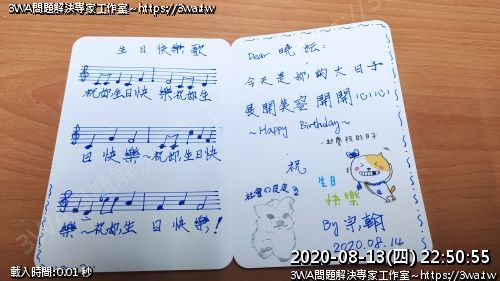 3WA問題解決專家工作室~https://3wa.tw
3WA問題解決專家工作室~https://3wa.tw
生日快樂歌
祝妳生日快 樂祝妳生
日 快 樂~祝妳生日快
樂~祝妳生 日 快 樂!
Dear 曉妘:
今天是妳的大日子
展開笑容 開開心心
~Happy Birthday~
祝
生日
快樂
By 宗翰
2020.08.14
2020-08-13(四) 22:50:55
載入時間:0.01 秒
3WA問題解決專家工作室~https://3wa.tw